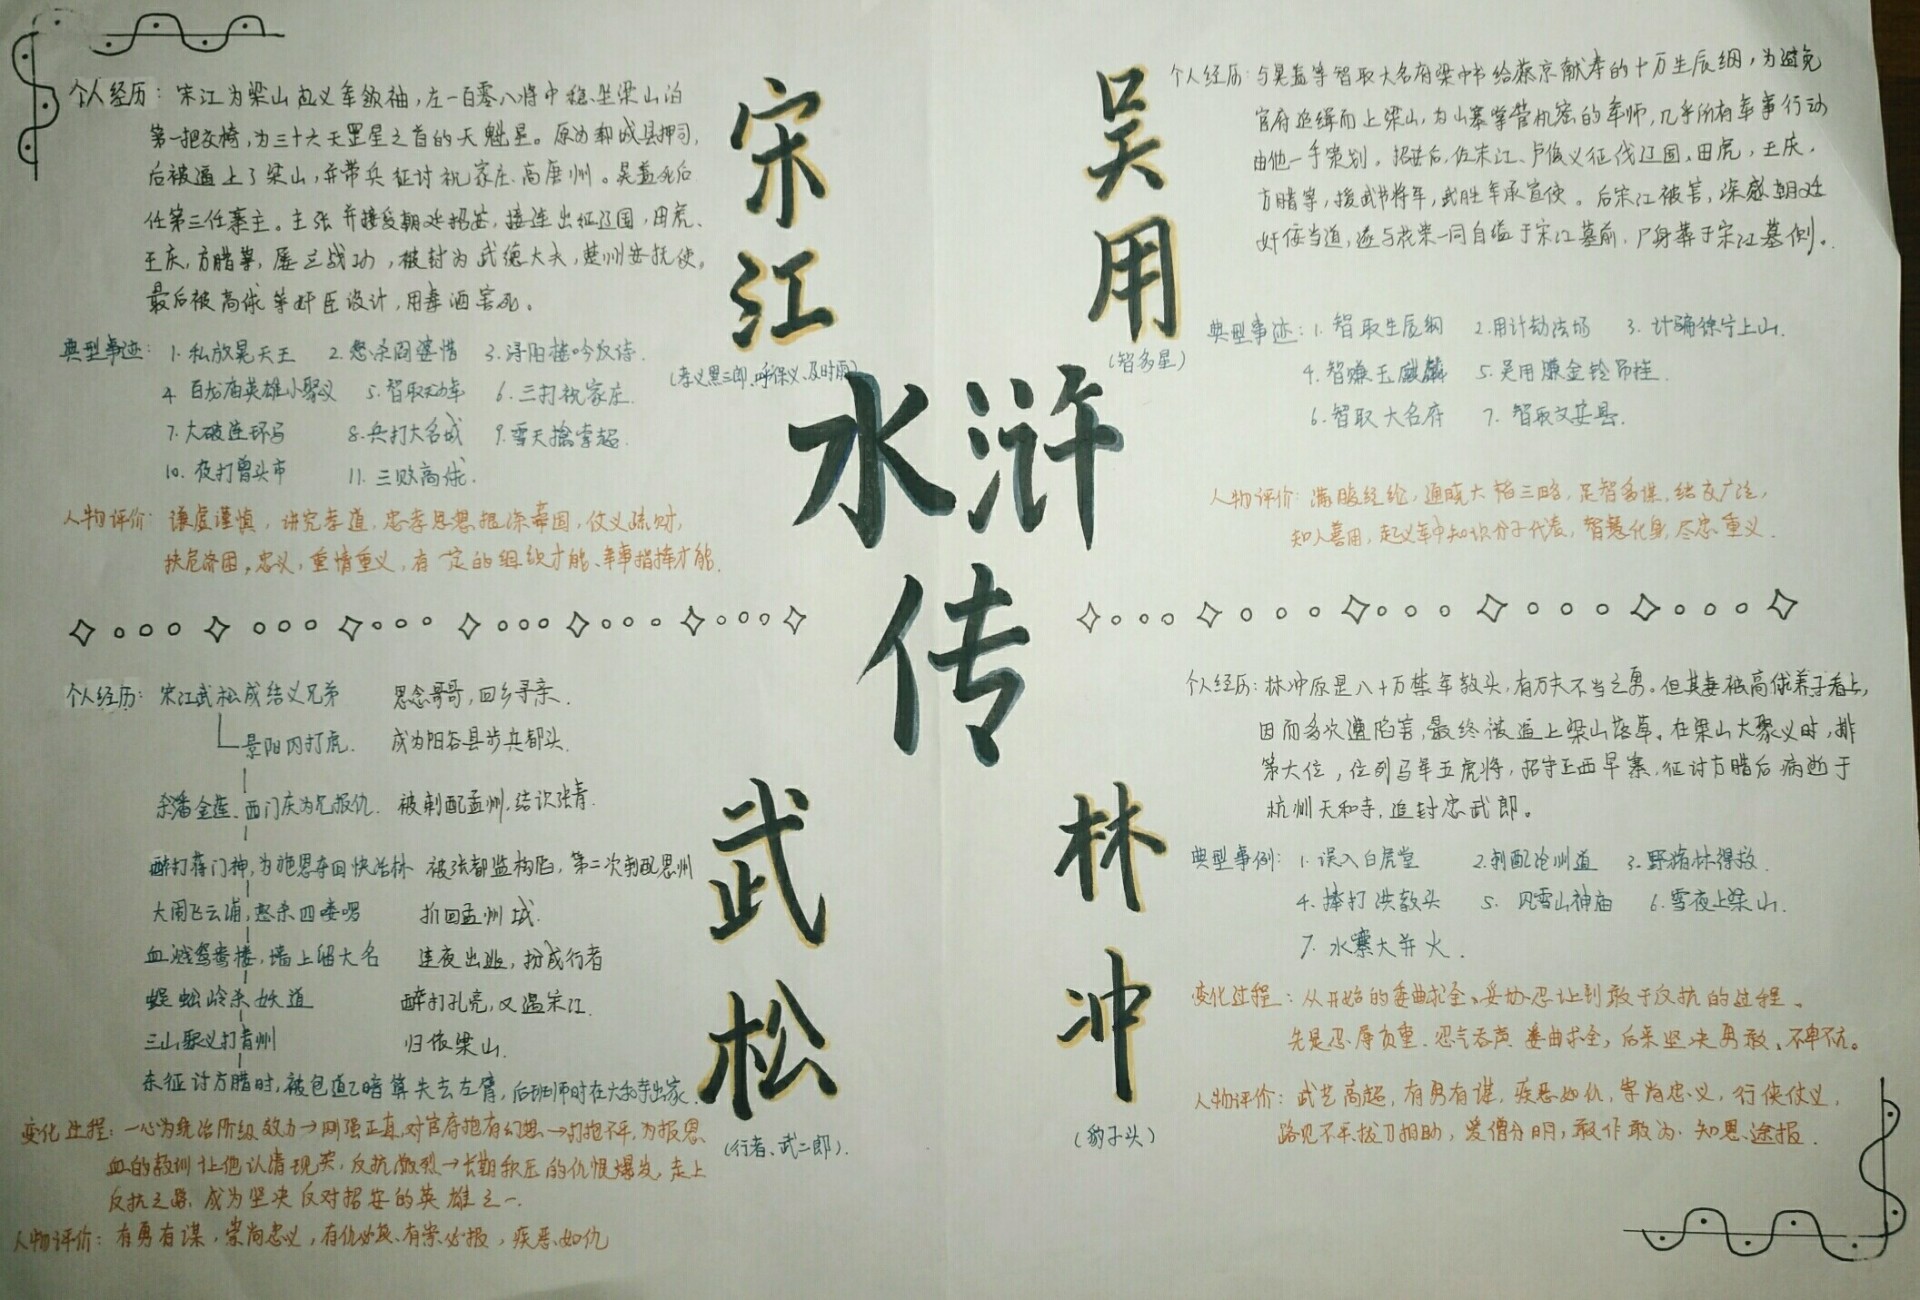 宋江
(孝义黑三郎、呼保义、及时雨)
个人经历：宋江为梁山起义军领袖，在一百零八将中稳坐梁山泊
第一把交椅，为三十六天罡星之首的天魁星。原为郓城县押司，
后被逼上了梁山，并带兵征讨祝家庄、高唐州。晁盖死后
任第三任寨主。主张并接受朝廷招安，接连出征辽国，田虎、
王庆，方腊等，屡立战功，被封为武德大夫，楚州安抚使。
最后被高俅等奸臣设计，用毒酒害死。
典型事迹：1.私放晁天王 2.怒杀阎婆惜 3.浔阳楼吟反诗.
4 白龙庙英雄小聚义 5.智取无为军 6.三打祝家庄.
7.大破连环马 8.兵打大名城 9.雪天擒索超.
10.夜打曾头市 11.三败高俅.
人物评价：谦虚谨慎，讲究孝道，忠孝思想根深蒂固，仗义疏财，
扶危济困，忠义，重情重义，有一定的组织才能、军事指挥才能.
吴用
(智多星)
个人经历：与晁盖等智取大名府梁中书给蔡京献寿的十万生辰纲，为避免
官府追缉而上梁山，为山寨掌管机密的军师，几乎所有军事行动
由他一手策划。招安后，佐宋江、卢俊义征伐辽国，田虎，王庆，
方腊等，授武节将军，武胜军承宣使。后宋江被害，深感朝廷
奸佞当道，遂与花荣一同自缢于宋江墓前，尸身葬于宋江墓侧。
典型事迹：1.智取生辰纲 2.用计劫法场 3.计骗徐宁上山.
4.智赚玉麒麟 5.吴用赚金铃吊挂.
6.智取大名府 7.智取文安县.
人物评价：满腹经纶，通晓六韬三略，足智多谋，结交广泛，
知人善用，起义军中知识分子代表，智慧化身，尽忠重义.
水浒
传
武松
(行者、武二郎).
个人经历：宋江武松成结义兄弟 思念哥哥，回乡寻亲.
景阳冈打虎. 成为阳谷县步兵都头.
杀潘金莲、西门庆为兄报仇. 被刺配孟州，结识张青.
醉打蒋门神，为施恩夺回快活林 被张都监构陷，第二次刺配恩州
大闹飞云浦，怒杀四喽啰 折回孟州城.
血溅鸳鸯楼，墙上留大名 连夜出逃，扮成行者
蜈蚣岭杀妖道 醉打孔亮，又遇宋江.
三山聚义打青州 归依梁山.
东征讨方腊时，被包道乙暗算失去左臂，后班师时在六和寺出家.
变化过程：一心为统治阶级效力→刚强正直对官府抱有幻想→打抱不平，为报恩
血的教训让他认清现实，反抗激烈→长期积压的仇恨爆发，走上
反抗之路，成为坚决反对招安的英雄之一.
人物评价：有勇有谋，崇尚忠义，有仇必报、有崇必报，疾恶如仇
林冲
(豹子头)
个人经历：林冲原是八十万禁军教头，有万夫不当之勇。但其妻被高俅养子看上，
因而多次遭陷害，最终被逼上梁山落草。在梁山大聚义时，排
第六位，位列马军五虎将，招守正西旱寨，征讨方腊后病逝于
杭州六和寺，追封忠武郎。
典型事例：1.误入白虎堂 2.刺配沧州道 3.野猪林得救.
4.棒打洪教头 5.风雪山神庙 6.雪夜上梁山.
7.水寨大并火.
变化过程：从开始的委曲求全、妥协忍让到敢于反抗的过程、
先是忍辱负重、忍气吞声、委曲求全，后来坚决勇敢、不卑不亢。
人物评价：武艺高超，有勇有谋，疾恶如仇，崇尚忠义，行侠仗义，
路见不平拔刀相助，爱憎分明，敢作敢为、知恩途报.